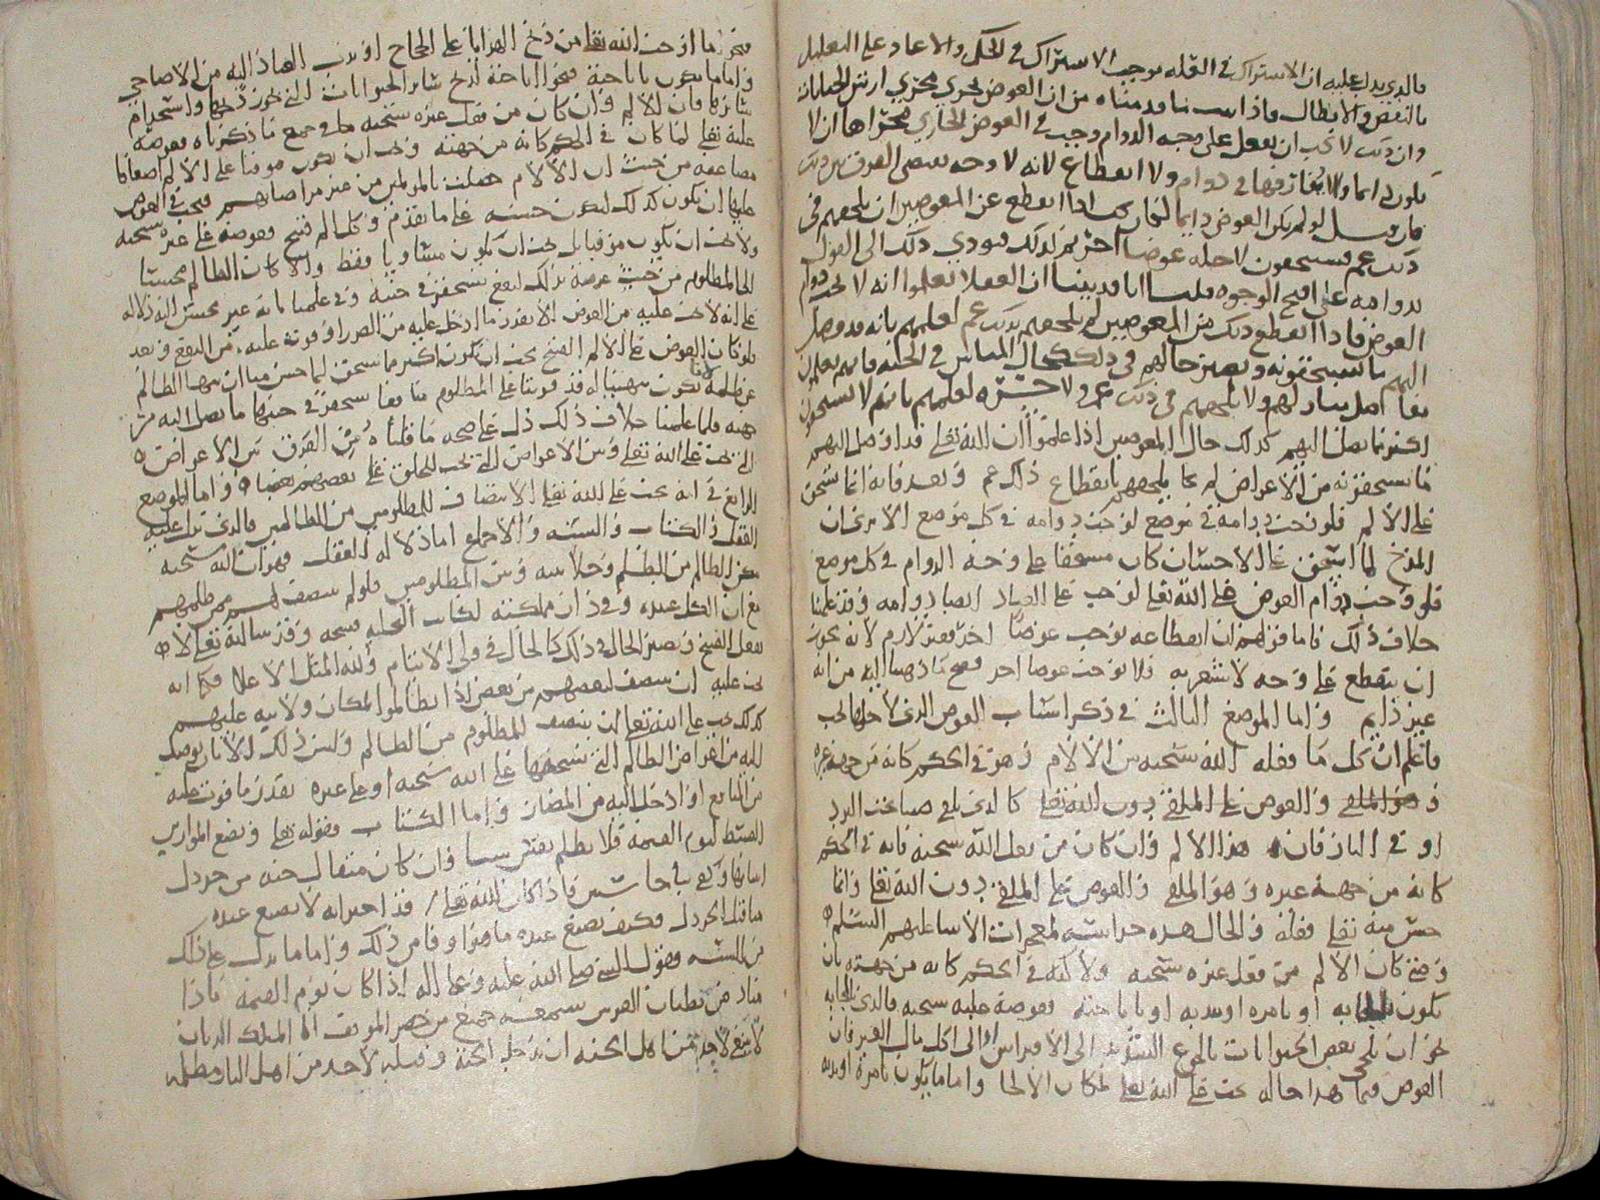 فالذي يدل عليه ان الاشتراك في العله يوجب الاشتراك في الحكم والا عاد على التعليل
بالنقض والابطال واذا ثبت ما قدمناه من ان العوض يجري مجرى ارش الجنايات
وان ذلك لا يجب ان يفعل على وجه الدوام وجب في العوض الجاري مجراها ان لا
يكون دائما ولا يفارقها في دوام ولا انقطاع لانه لا وجه يقتضي الفرق بين ذلك
فان قيل لو لم يكن العوض دايما لكان متى انقطع عن المعوضين ان يلحقهم في
ذلك غم يستحقون لاجله عوضا اخر ثم كذلك فيودي ذلك الى القول
بدوامه على اقبح الوجوه قلنا انا قد بينا ان العقلا يعلموا انه لا يجب دوام
العوض فاذا انقطع ذلك عن المعوضين لم يلحقهم بذلك غم لعلمهم بانه قد وصل
اليهم ما يستحقونه ويصير حالهم في ذلك كحال
اكثر مما يصل اليهم كذلك حال المعوضين اذا علموا ان الله تعالى قد اوصل اليهم
ما يستحقونه من الاعواض لم يلحقهم بانقطاع ذلك غم وبعد فانه انما يستحق
على الالم فلو وجب دوامه في موضع لوجب دوامه في كل موضع الا ترى ان
المدح لما استحق على الاحسان كان مستحقا على وجه الدوام في كل موضع
فلو وجب دوام العوض على الله تعالى لوجب على العباد ايضا دوامه وقد علمنا
خلاف ذلك فاما قولهم ان انقطاعه يوجب عوضا اخر فغير لازم لانه يجوز
ان ينقطع على وجه لا يشعر به فلا يوجب عوضا اخر فصح ما ذهبنا اليه من انه
غير دايم واما الموضع الثالث في ذكر اسباب العوض الذي لاجلها يجب
فاعلم ان كل ما فعله الله سبحانه من الالام وهو في الحكم كانه من جهة غيره
وهو الملقي والعوض على الملقي دون الله تعالى كالذي يلقي صبيا تحت البرد
او في النار فان هذا الالم وان كان من فعل الله سبحانه فانه في الحكم
كانه من جهة غيره وهو الملقي والعوض على الملقي دون الله تعالى وانما
حسن منه تعالى فعله والحال هذه حراسة لمعجزات الانبيا عليهم السلم
ومتى كان الالم من فعل غيره سبحانه ولاكنه في الحكم كانه من جهته بان
يكون بالجايه او بامره او ندبه او باباحته فعوضه عليه سبحانه فالذي بالجايه
نحو ان يلجي بعض الحيوانات بالجوع الشديد الى الافتراس او الى اكل مال الغير فان
العوض فيما هذا حاله يجب على الله تعالى لمكان الالجا واما ما يكون بامره او ندبه
فنحو ما اوجب الله تعالى من ذبح الهدايا على الحجاج او ندب العباد اليه من الاضاحي
واما ما يكون باباحته فنحو اباحته لذبح سائر الحيوانات التي يجوز ذبحها واستخدام
سائرها فان الالم وان كان من فعل غيره سبحانه في جميع ما ذكرناه فعوضه
عليه تعالى لما كان في الحكم كانه من جهته ويجب ان يكون موفيا على الالم اضعافا
مضاعفه من حيث ان الالام حصلت بالمولمين من غير مراضاتهم فيجب في العوض
عليها ان يكون كذلك ليكون حسنه على ما تقدم وكل الم قبيح فعوضه على غيره سبحانه
ولا يجب ان يكون موفيا بل يجب ان يكون مساويا فقط والا كان الظالم محسنا
الى المظلوم من حيث عرضه بذلك لنفع يستحقر في جنبه وفي علمنا بانه غير محسن اليه دلاله
على انه لا يجب عليه من العوض الا بقدر ما ادخل عليه من الضرر او فوته عليه من النفع وبعد
فلو كان العوض على الالم القبيح يجب ان يكون اكثر مما يستحق لما حسن منا ان ننهى الظالم
عن ظلمه
جهته فلما علمنا خلاف ذلك دل على صحه ما قلناه من الفرق بين الاعواض
التي تجب على الله تعالى وبين الاعواض التي تجب للخلق على بعضهم بعضا واما الموضع
الرابع في انه يجب على الله تعالى الانتصاف للمظلومين من الظالمين فالذي يدل عليه
العقل والكتاب والسنه والاجماع اما دلاله العقل فهو ان الله سبحانه
مكن الظالم من الظلم وخلا بينه وبين المظلومين فلولم ينتصف لهم ممن ظلمهم
مع ان الكل عبيده وفي مملكته لكانت التخليه قبيحه وقد ثبت انه تعالى لا
يفعل القبيح ويصير الحال في ذلك كالحال في ولي الايتام ولله المثل الاعلا فكما انه
يجب عليه ان ينصف لبعضهم من بعض اذا تظالموا لمكان ولايته عليهم
كذلك يجب على الله تعالى ان ينتصف للمظلوم من الظالم وليس ذلك الا بان يوصل
اليه من اعواض الظالم التي يستحقها على الله سبحانه او على غيره بقدر ما فوت عليه
من المنافع او ادخل اليه من المضار واما الكتاب فقوله تعالى ونضع الموازين
القسط ليوم القيمه فلا تظلم نفس شيا وان كان مثقال حبه من خردل
اتينا بها وكفى بنا حاسبين فاذا كان الله تعالى قد اخبر انه لا يضيع عنده
مثقال الخردل فكيف يضيع عنده ما هو اوفا من ذلك واما ما يدل على ذلك
من السنه فقول النبي صلى الله عليه وعلى اله اذا كان يوم القيمه نادا
مناد من بطنان العرش يسمعه جميع من حضر الموقف انا الملك الديان
لا ينبغي لاحد من اهل الجنه ان يدخل الجنة وقبله لاحد من اهل النار مظلمه